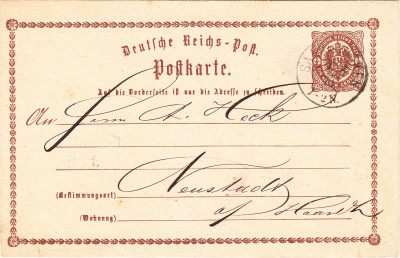 Deutsche Reichs-Post.
Postkarte.
Auf die Vorderseite ist nur die Adresse zu schreiben.
An Herrn A. Heck
Neustadt
(Bestimmungsort)
a/Haardt
(Wohnung)